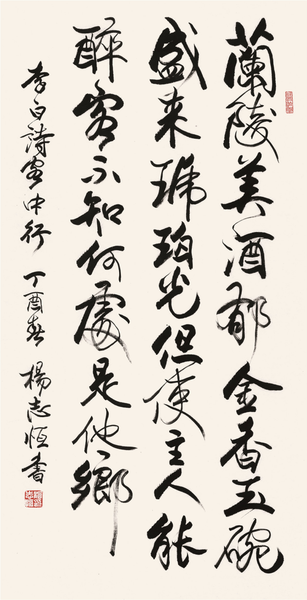 蘭陵美酒郁金香玉碗
盛来琥珀光但使主人能
醉客不知何處是他鄉
李白詩客中行 丁酉春 楊志恒書